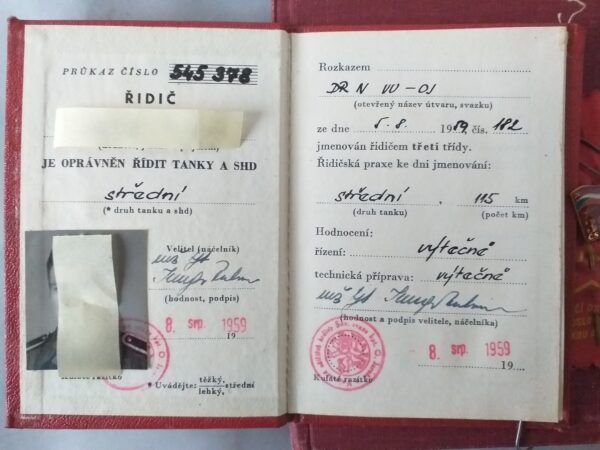 PRŮKAZ ČÍSLO 545 378
ŘIDIČ
JE OPRÁVNĚN ŘÍDIT TANKY A SHD
střední
(* druh tanku a shd)
Velitel (náčelník)
(hodnost, podpis)
8. srp. 1959
19
Kulaté razítko
* Uvádějte: těžký, střední
lehký,
Rozkazem
DR N VÚ-OJ
(otevřený název útvaru, svazku)
ze dne 5.8. 1959, čís. 182
jmenován řidičem třetí třídy.
Řidičská praxe ke dni jmenování:
střední . 115 km
(druh tanku) (počet km)
Hodnocení:
řízení: výtečné
technická příprava: výtečné
(hodnost a podpis velitele, náčelníka)
8. srp. 1959
19
Kulaté razítko